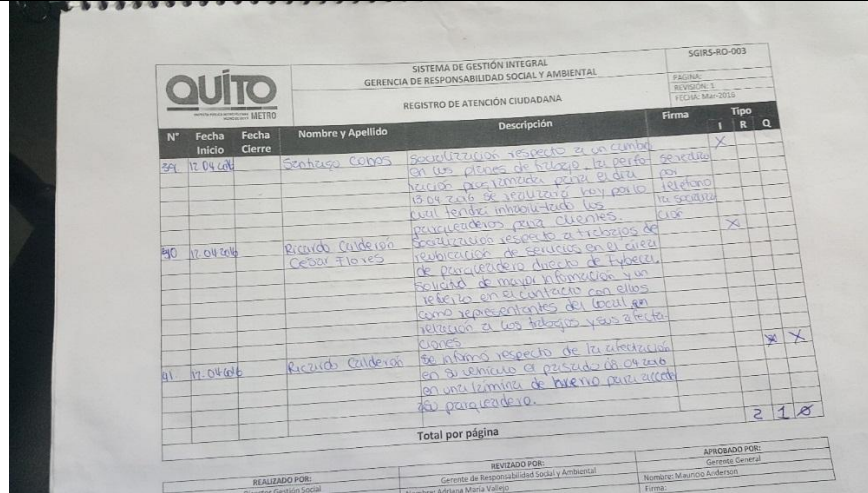 QUITO
METRO
SISTEMA DE GESTIÓN INTEGRAL
GERENCIA DE RESPONSABILIDAD SOCIAL Y AMBIENTAL
REGISTRO DE ATENCIÓN CIUDADANA
SGIRS-RO-003
PÁGINA:
REVISIÓN: 1
FECHA: Mar-2016
N° Fecha Inicio Fecha Cierre Nombre y Apellido Descripción Firma Tipo
I R Q
39 12.04.2016 Santiago Cobos Socialización respecto a un cambio X
en los planes de trabajo. La perfo- se realizó
ración programada para el día por
13.04.2016 se realizará hoy por lo teléfono
cual tendrá inhabilitado los la socializa
parqueaderos para clientes. ción
40 12.04.2016 Ricardo Calderón Socialización respecto a trabajos de X
Cesar Flores reubicación de servicios en el área
de parqueadero directo de
solicitud de mayor información y un
refuerzo en el contacto con ellos
como representantes del local en
relación a los trabajos y sus afecta
ciones
41 12.04.2016 Ricardo Calderón Se informó respecto de la afectación X
en su vehículo el pasado 04 2016
en una lámina de hierro para acceder
parqueadero.
Total por página 2 1
REALIZADO POR: REVIZADO POR: APROBADO POR:
Gestión Social Gerente de Responsabilidad Social y Ambiental Gerente General
Adriana María Vallejo Nombre: Mauricio Anderson
Firma: